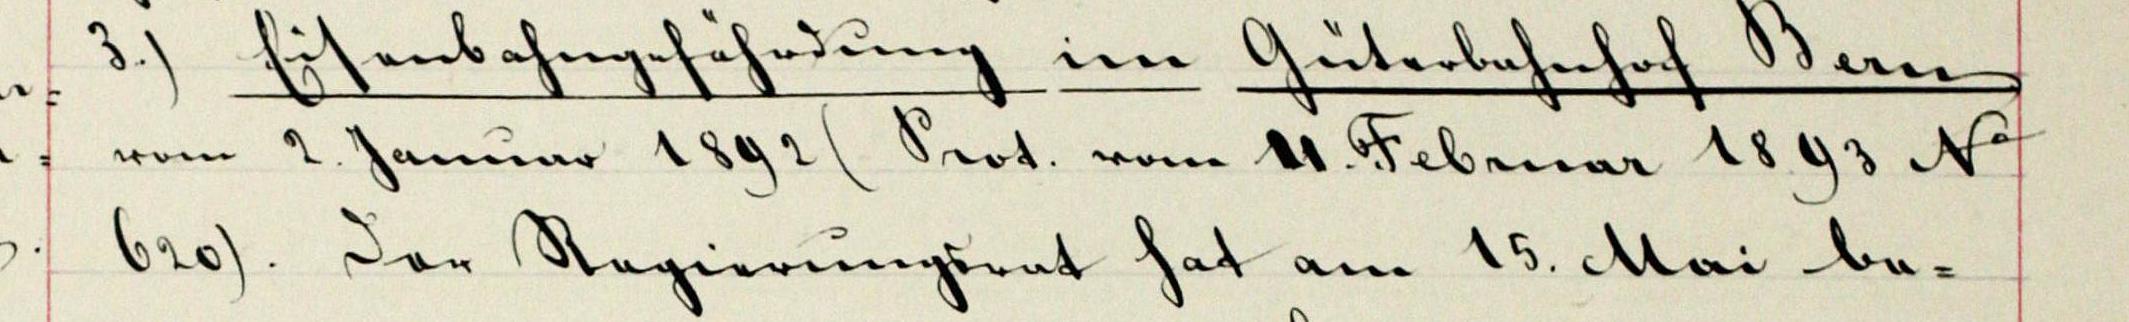 3.) Eisenbahngefährdung im Güterbahnhof Bern
vom 2. Januar 1892 (Prot. vom 11. Februar 1893 No
620). Der Regierungsrat hat am 15. Mai be=